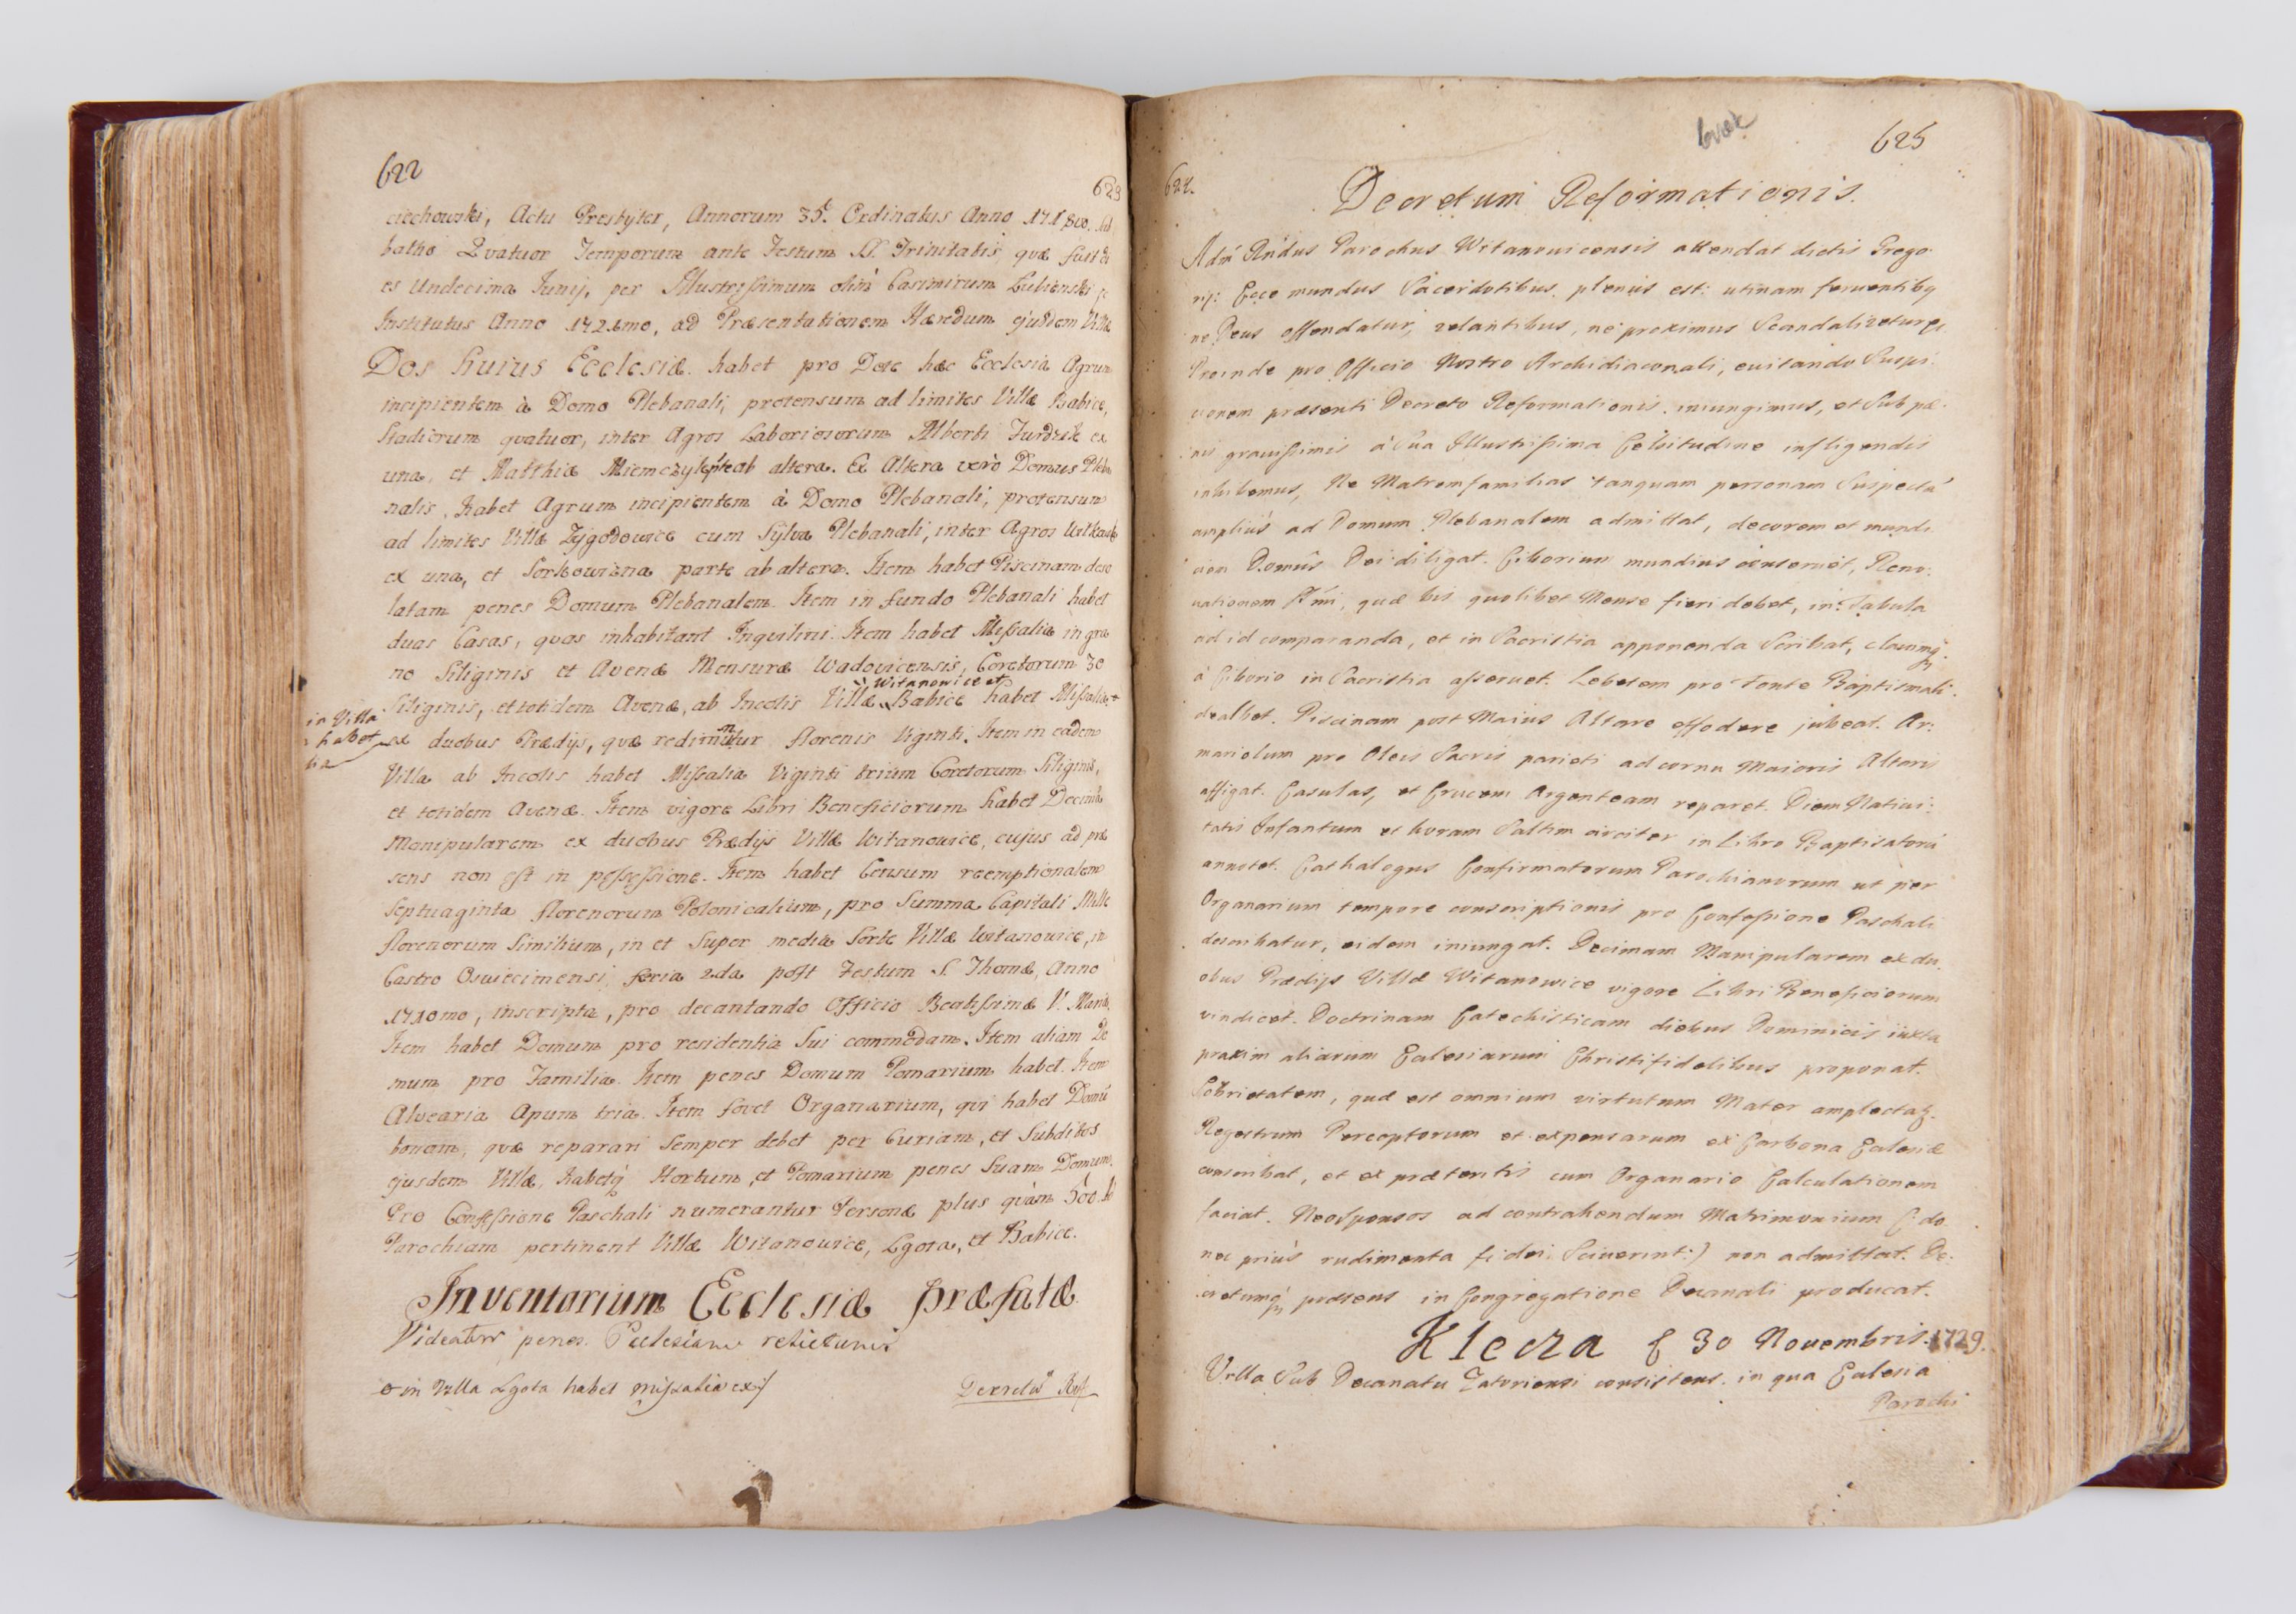 622
623
ciechowski, Actu Presbyter, Annorum 35. Ordinatus Anno
batho Quatuor Temporum ante Festum SS. Trinitatis, quæ fuit di
es Undecima Junij, per Illustrissimum olim Casimirum Łubienski
Institutus Anno 1721mo, ad Præsentationem Hæredum ejusdem Villæ
Dos huius Ecclesiæ. habet pro Dote hæc Ecclesia Agrum
incipientem à Domo Plebanali, protensum ad limites Villæ Babice,
Stadiorum quatuor, inter Agros Laboriosorum Alberti Jurdzik ex
una, et Matthiæ Miemczyk pte ab altera. Ex Altera verò Domus Pleba
nalis, habet Agrum incipientem à Domo Plebanali, protensum
ad limites Villæ Zygodowice cum Sylva Plebanali, inter Agros
ex una, et parte ab altera. Item habet Piscinam deso
latam penes Domum Plebanalem. Item in fundo Plebanali habet
duas Casas, quas inhabitant Inquilini. Item habet Missalia in gra
no Siliginis et Avenæ Mensuræ Wadovicensis, Coretorum 30
Witanowice et
Siliginis, et totidem Avenæ, ab Incolis Villæ Babice habet Missalia
in Villa
habet
ex duobus Prædijs, quæ redimuntur florenis Viginti. Item in eadem
Villa ab Incolis habet Missalia Viginti trium Coretorum Siliginis,
et totidem Avenæ. Item vigore Libri Beneficiorum habet Decimã
Manipularem ex duobus Prædijs Villæ Witanowice, cujus ad præ
sens non est in possessione. Item habet Censum reemptionalem
Septuaginta florenorum Polonicalium, pro Summa Capitali Mille
florenorum Similium, in et super media Sorte Villæ Witanowice, in
Castro Oswiecimensi feria 2da post Festum S. Thomæ, Anno
1710mo, inscripta, pro decantando Officio Beatissimæ V. Mariæ,
Item habet Domum pro residentia Sui commodam. Item aliam Do
mum pro Familia. Item penes Domum Pomarium habet. Item
Alvearia Apum tria. Item fovet Organarium, qui habet Domũ
bonam, quæ reparari Semper debet per Curiam, et Subditos
ejusdem Villæ, habetq Hortum, et Pomarium penes Suam Domum.
Pro Confessione Paschali numerantur Personæ plus quàm 500. Ad
Parochiam pertinent Villæ Witanowice, Lgota, et Babice.
Inventarium Ecclesiæ præfatæ
Videatur penes Ecclesiam relictum
in Villa Lgota habet missalia ex
Decretũ Ref
624.
625
Decretum Reformationis.
Adm Rndus Parochus Witanovicensis attendat dictis Grego:
rij: Ecce mundus Sacerdotibus plenus est: utinam ferventibq
ne Deus offendatur, zelantibus, ne proximus Scandalizetur
Proinde pro Officio Nostro Archidiaconali, evitando Suspi
cionem præsenti Decreto Reformationis iniungimus, et Sub pæ:
nis gravissimis à Sua Illustrissima Celsitudine infligendis
inhibemus, Ne Matremfamilias tanquam personam Suspectã
ampliùs ad Domum Plebanalem admittat, decorem et mundi
ciem Domûs Dei diligat. Ciborium mundius conservet, Reno:
vationem SSmi, quæ bis quolibet Mense fieri debet, in Tabula
ad id comparanda, et in Sacristia apponenda Scribat, clavimq
à Ciborio in Sacristia asservet. Lebetem pro Fonte Baptismali
dealbet. Piscinam post Maius Altare effodere jubeat. Ar:
mariolum pro Oleis Sacris parieti ad cornu Maioris Altaris
affigat. Casulas, et Crucem Argenteam reparet. Diem Nativi:
tatis Infantum et horam Saltim circiter in Libro Baptisatorũ
annotet. Cathalogus Confirmatorum Parochianorum ut per
Organarium tempore conscriptionis pro Confessione Paschali
describatur, eidem iniungat. Decimam Manipularem ex du
obus Prædijs Villæ Witanowice vigore Libri Beneficiorum
vindicet. Doctrinam Catechisticam diebus Dominicis iuxta
praxim aliarum Ecclesiarum Christifidelibus proponat.
Sobrietatem, quæ est omnium virtutum Mater amplectatur.
Regestrum Perceptorum et expensarum ex Carbona Ecclesiæ
conscribat, et ex præteritis cum Organario Calculationem
faciat. Neosponsos ad contrahendum Matrimonium (: do
nec priùs rudimenta fidei Sciverint:) non admittat. De:
cretumq præsens in Congregatione Decanali producat.
Klecza 30 Novembris. 1729.
Villa Sub Decanatu Zatoriensi consistens. in qua Ecclesia
Parochi